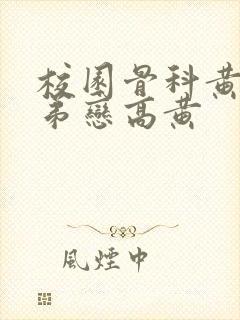 校園骨科黃
弟戀高黃
風煙中